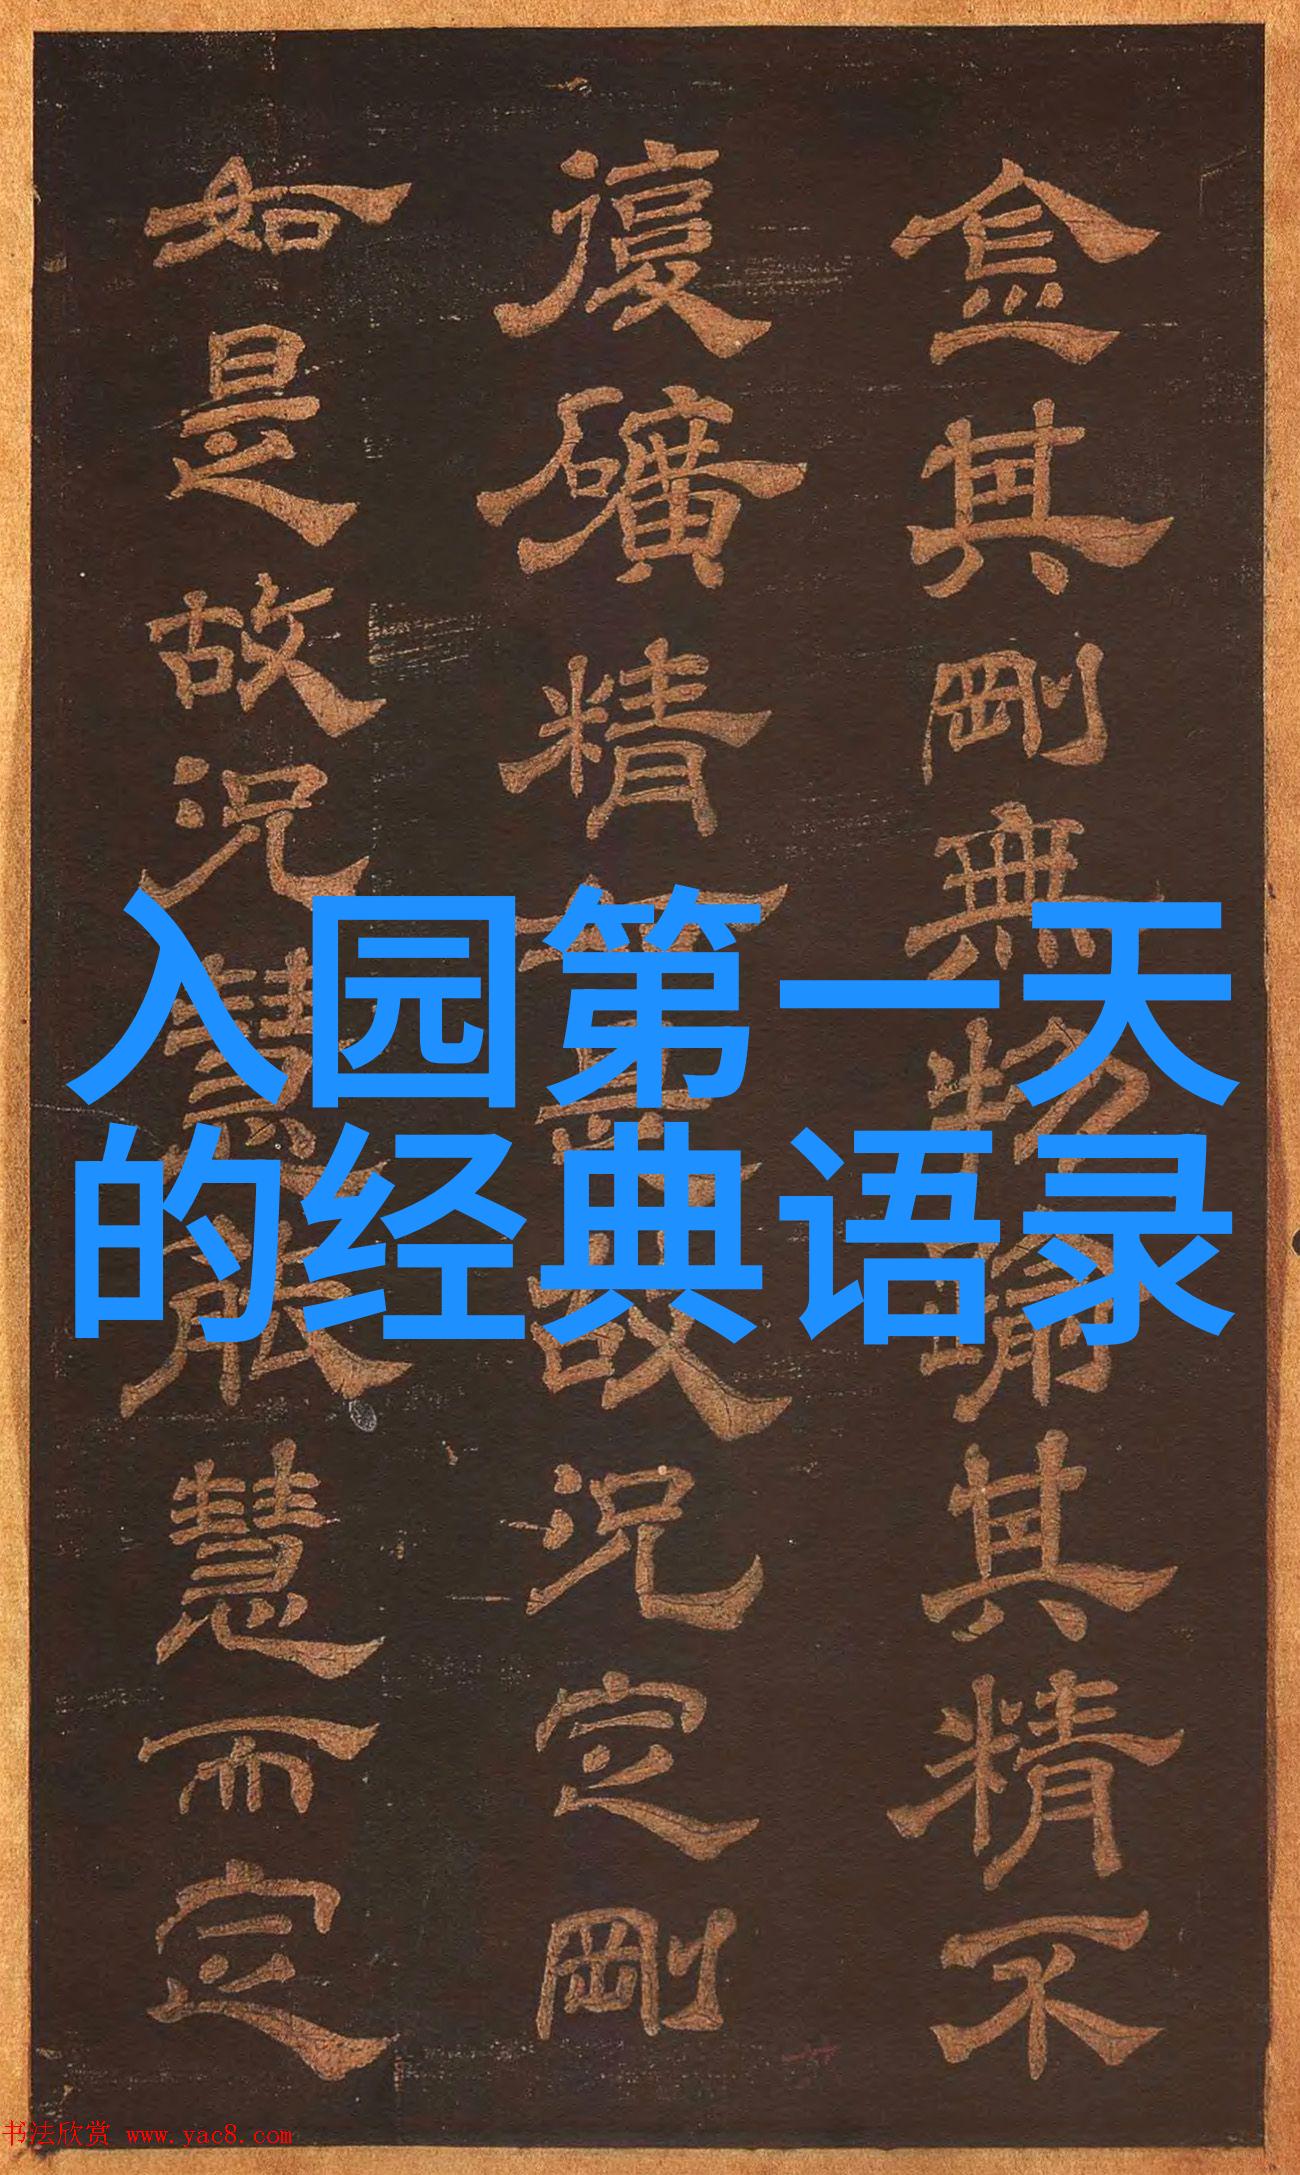 金其剛無物其精不
復礦精如是故況定剛
如是故況慧慧而定
入园第一天
的经典语录
书法欣赏 www.yac8.com